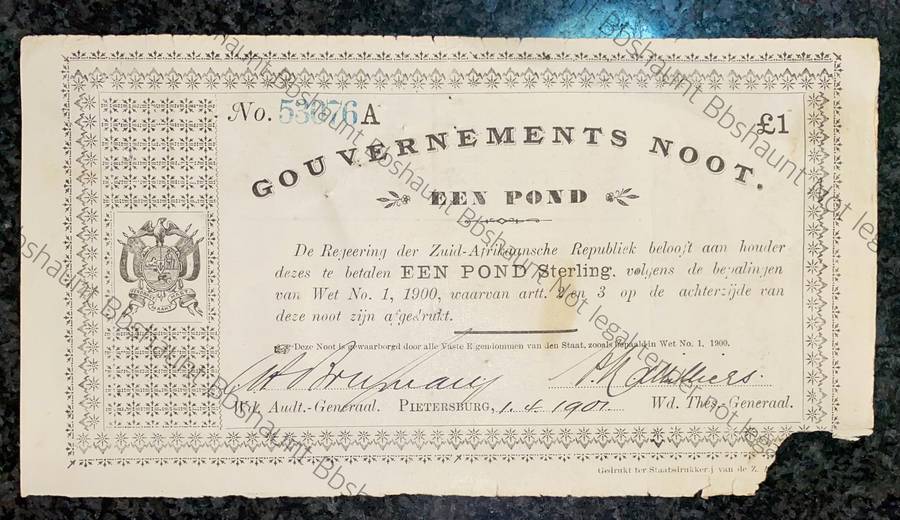 No. 53076 A
£1
GOUVERNEMENTS NOOT.
EEN POND
De Regeering der Zuid-Afrikaansche Republiek belooft aan houder
dezes te betalen EEN POND Sterling, volgens de bepalingen
van Wet No. 1, 1900, waarvan artt. 2 en 3 op de achterzijde van
deze noot zijn afgedrukt.
Deze Noot is gewaarborgd door alle Vaste Eigendommen van den Staat, zooals bepaald in Wet No. 1, 1900.
Wd. Audt.-Generaal. PIETERSBURG, 1.4.1901 Wd. Thes.-Generaal.
Gedrukt ter Staatsdrukkerij van de Z.
Bbshaunt Not legal tender